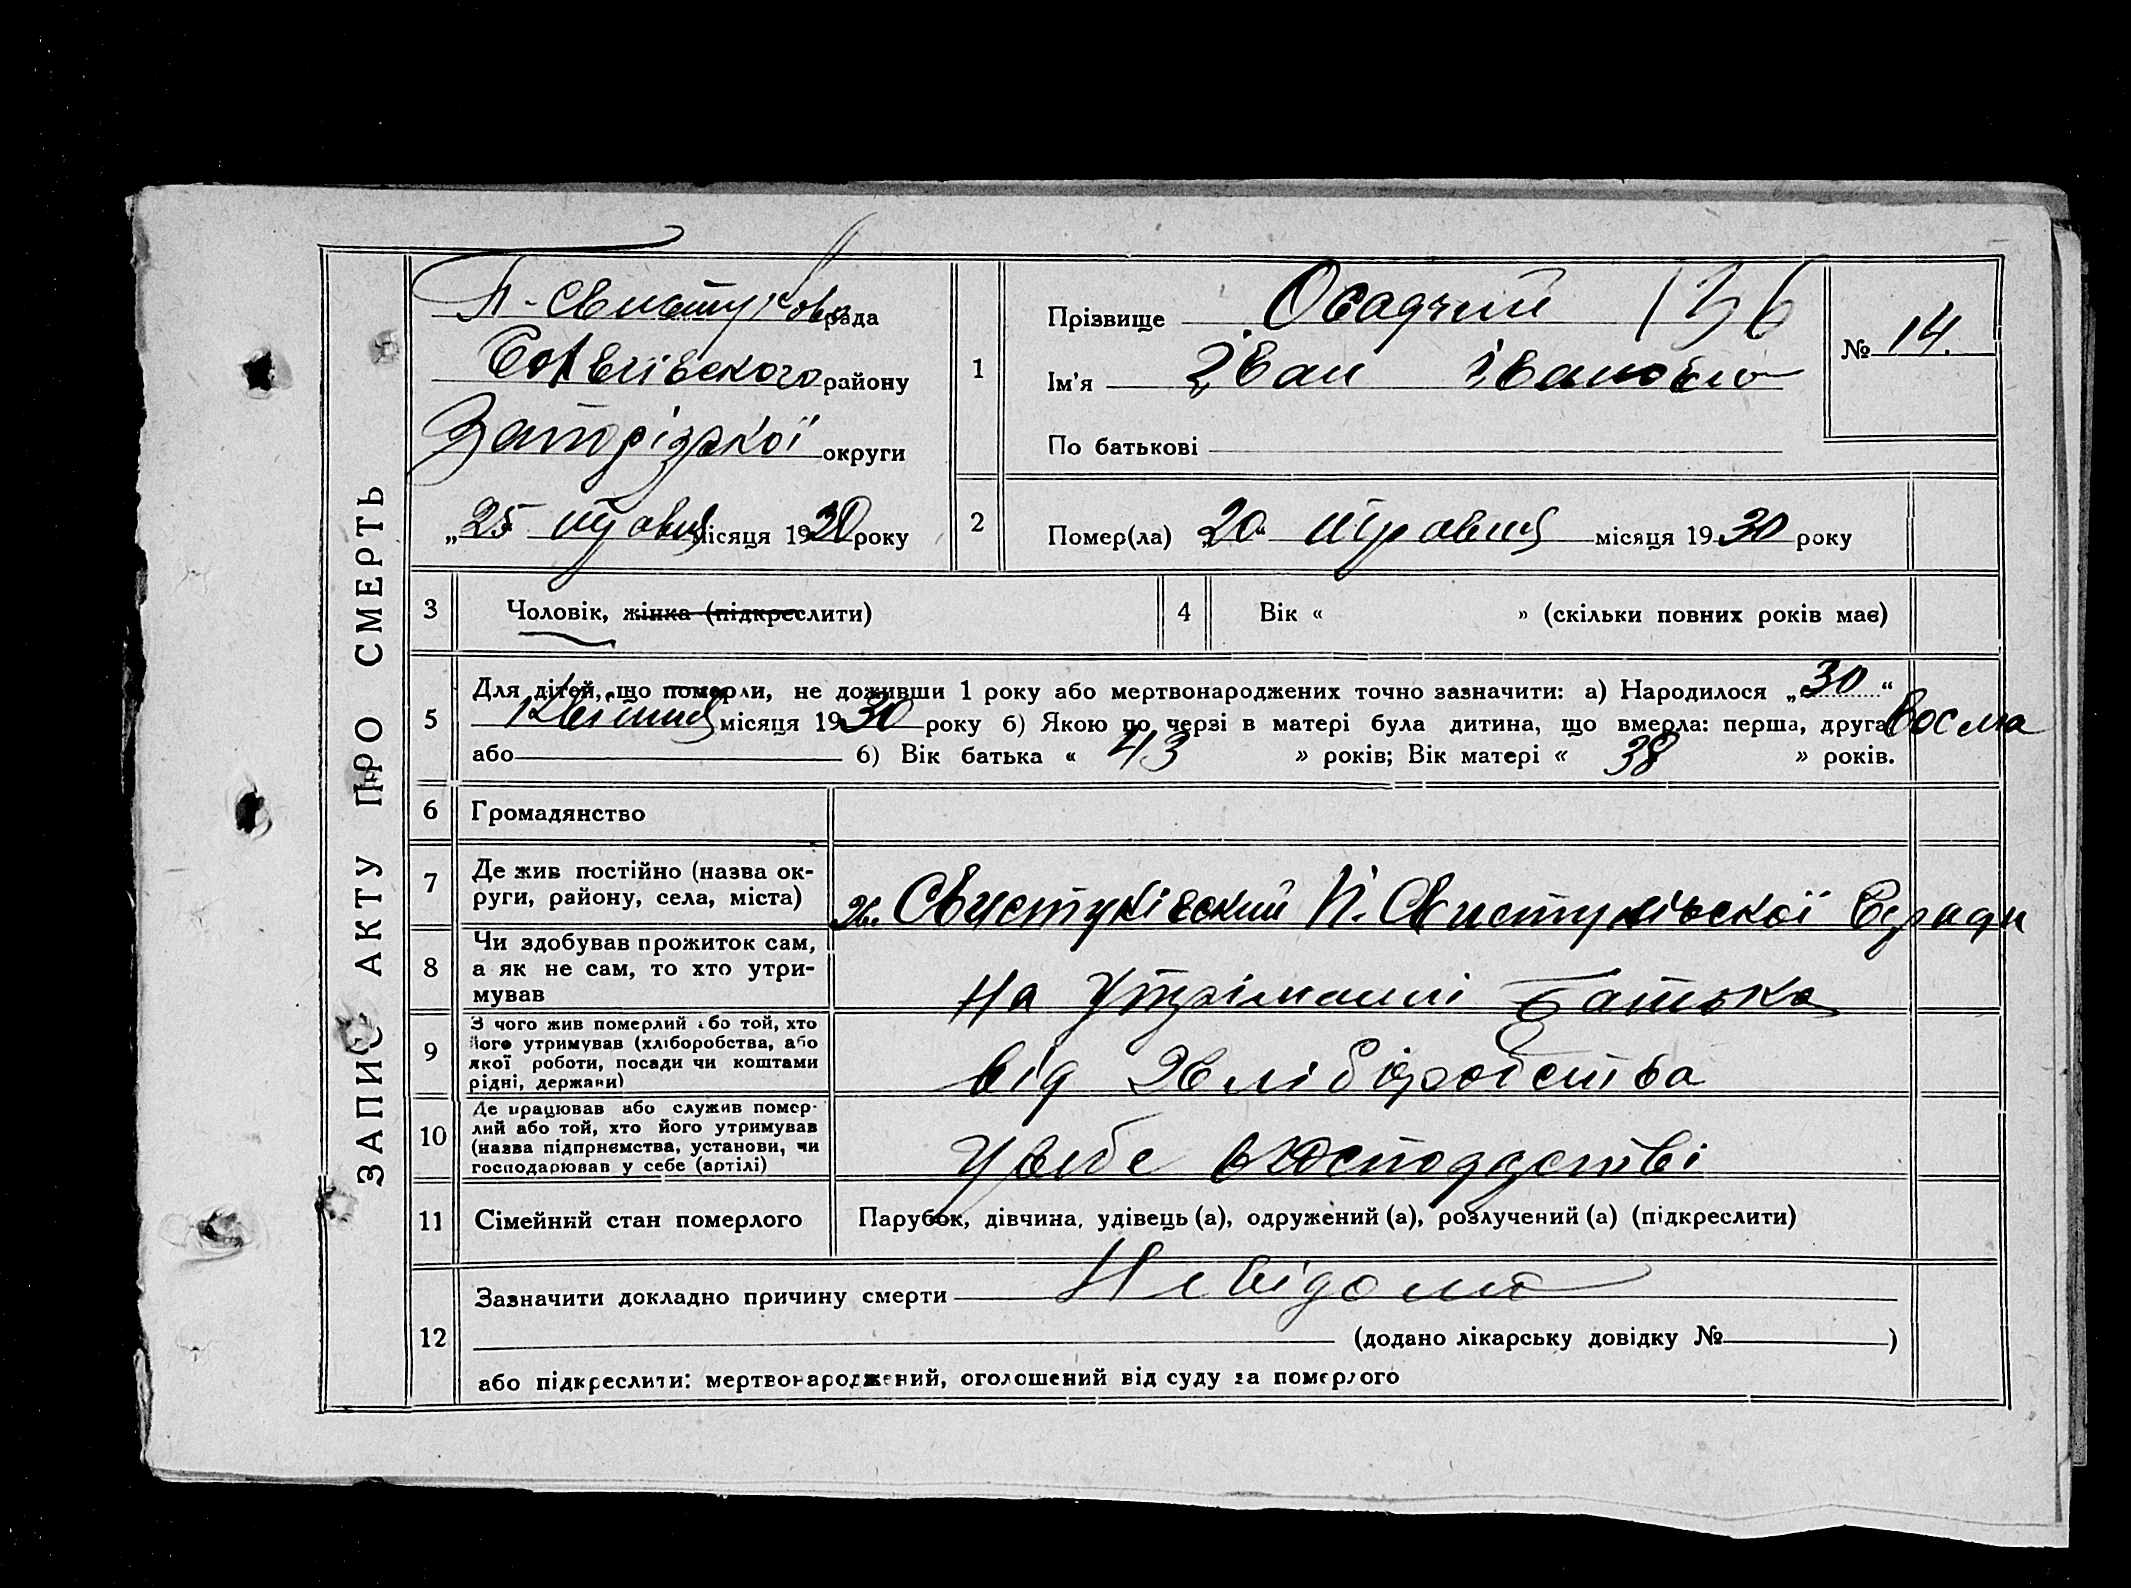 ЗАПИС АКТУ ПРО СМЕРТЬ
П-Свистуково рада
району
Запорізької округи
„25 травня місяця 1930 року
1
Прізвище Осадчий 136
Ім'я Іван Іванович
По батькові
№ 14.
2
Помер(ла) „20“ травня місяця 1930 року
3 Чоловік, жінка (підкреслити)
4 Вік « » (скільки повних років має)
5 Для дітей, що померли, не доживши 1 року або мертвонароджених точно зазначити: а) Народилося „30“
Квітня місяця 1930 року б) Якою по черзі в матері була дитина, що вмерла: перша, друга восма
або б) Вік батька « 43 » років; Вік матері « 38 » років.
6 Громадянство
7 Де жив постійно (назва округи, району, села, міста)
х. Свистуківский П. Свистуківскої С/ради
8 Чи здобував прожиток сам,
а як не сам, то хто утри-
мував
На утріманні батька
9 З чого жив померлий або той, хто
його утримував (хліборобства, або
якої роботи, посади чи коштами
рідні, держави)
від хліборобства
10 Де працював або служив помер-
лий або той, хто його утримував
(назва підприємства, установи, чи
господарював у себе (артілі)
у себе в господарстві
11 Сімейний стан померлого
Парубок, дівчина, удівець (а), одружений (а), розлучений (а) (підкреслити)
12
Зазначити докладно причину смерти Невідомо
(додано лікарську довідку № )
або підкреслити: мертвонароджений, оголошений від суду за померлого